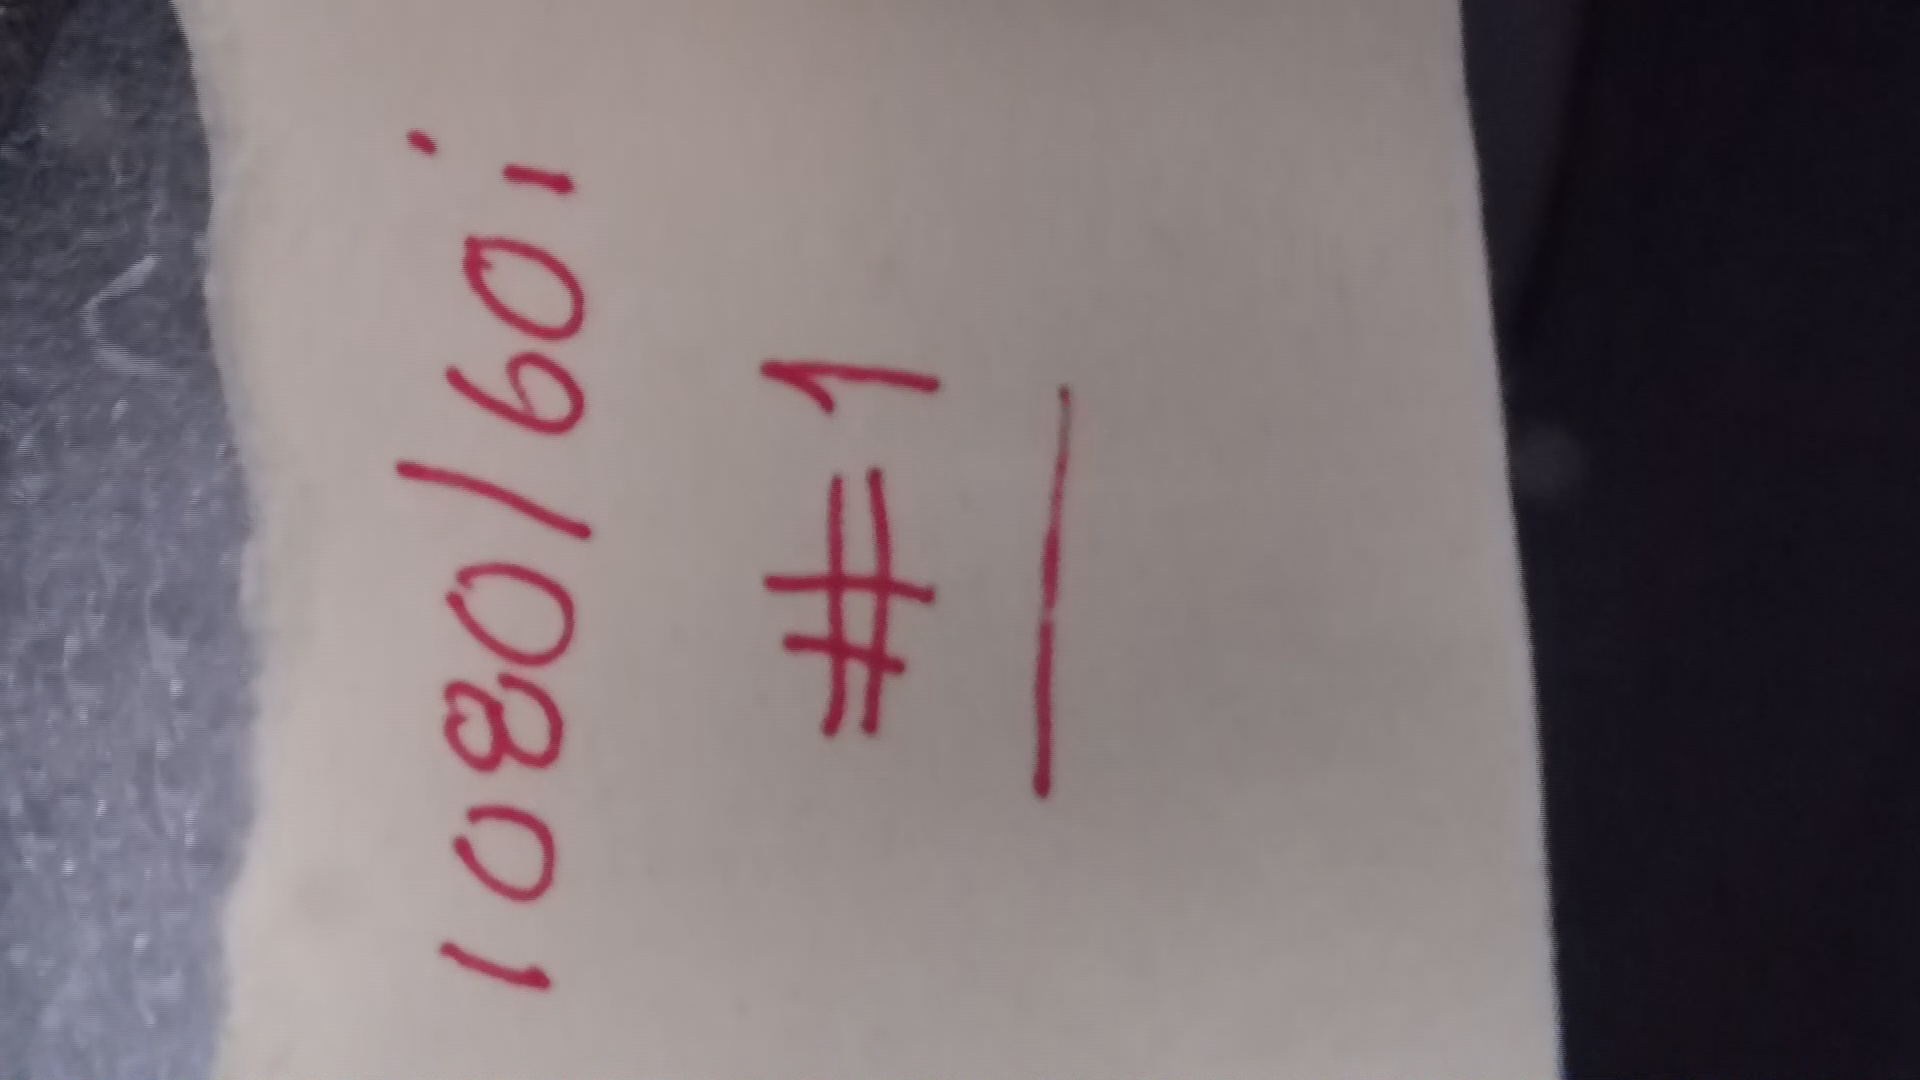 1080/60i
#1